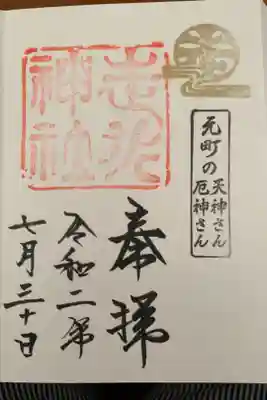 元町の
天神さん
厄神さん
奉拝
走水
神社
令和二年
七月三十日